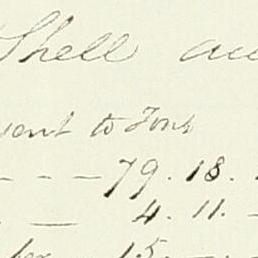 Shell acc
sent to Tons
- - - 79 . 18 .
- 4 . 11 . -
per 15 . - . -